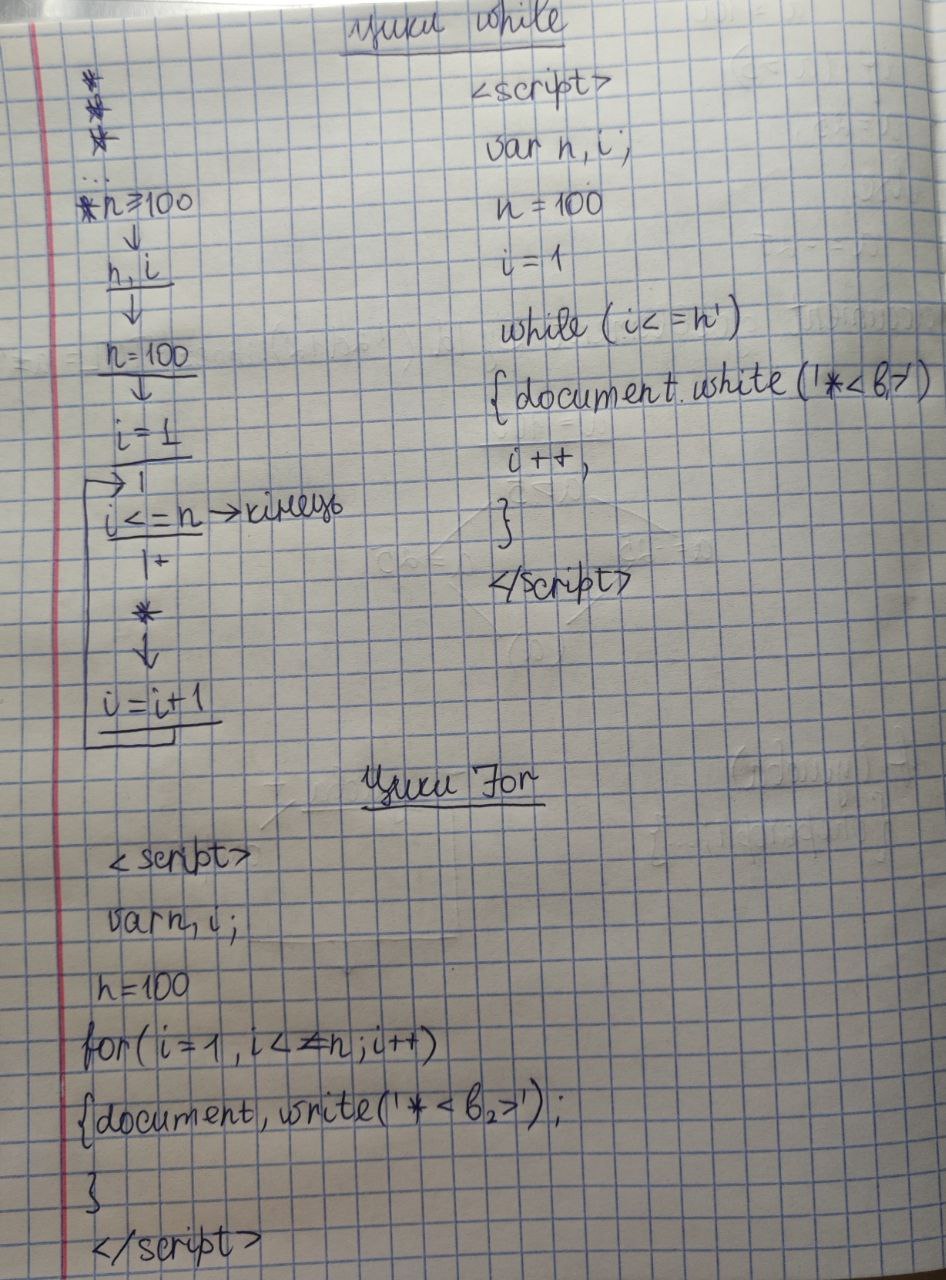 Цикл while
*
*
*
*
:
* n=100
↓
n, i
↓
n=100
↓
i=1
i<=n → кінець
1+
*
↓
i=i+1
<script>
var n, i;
n=100
i=1
while (i<=n')
{document.white('*<br>')
i++,
}
</script>
Цикл For
<script>
var n, i;
n=100
for(i=1, i<=n; i++)
{document, write('*<b2>');
}
</script>